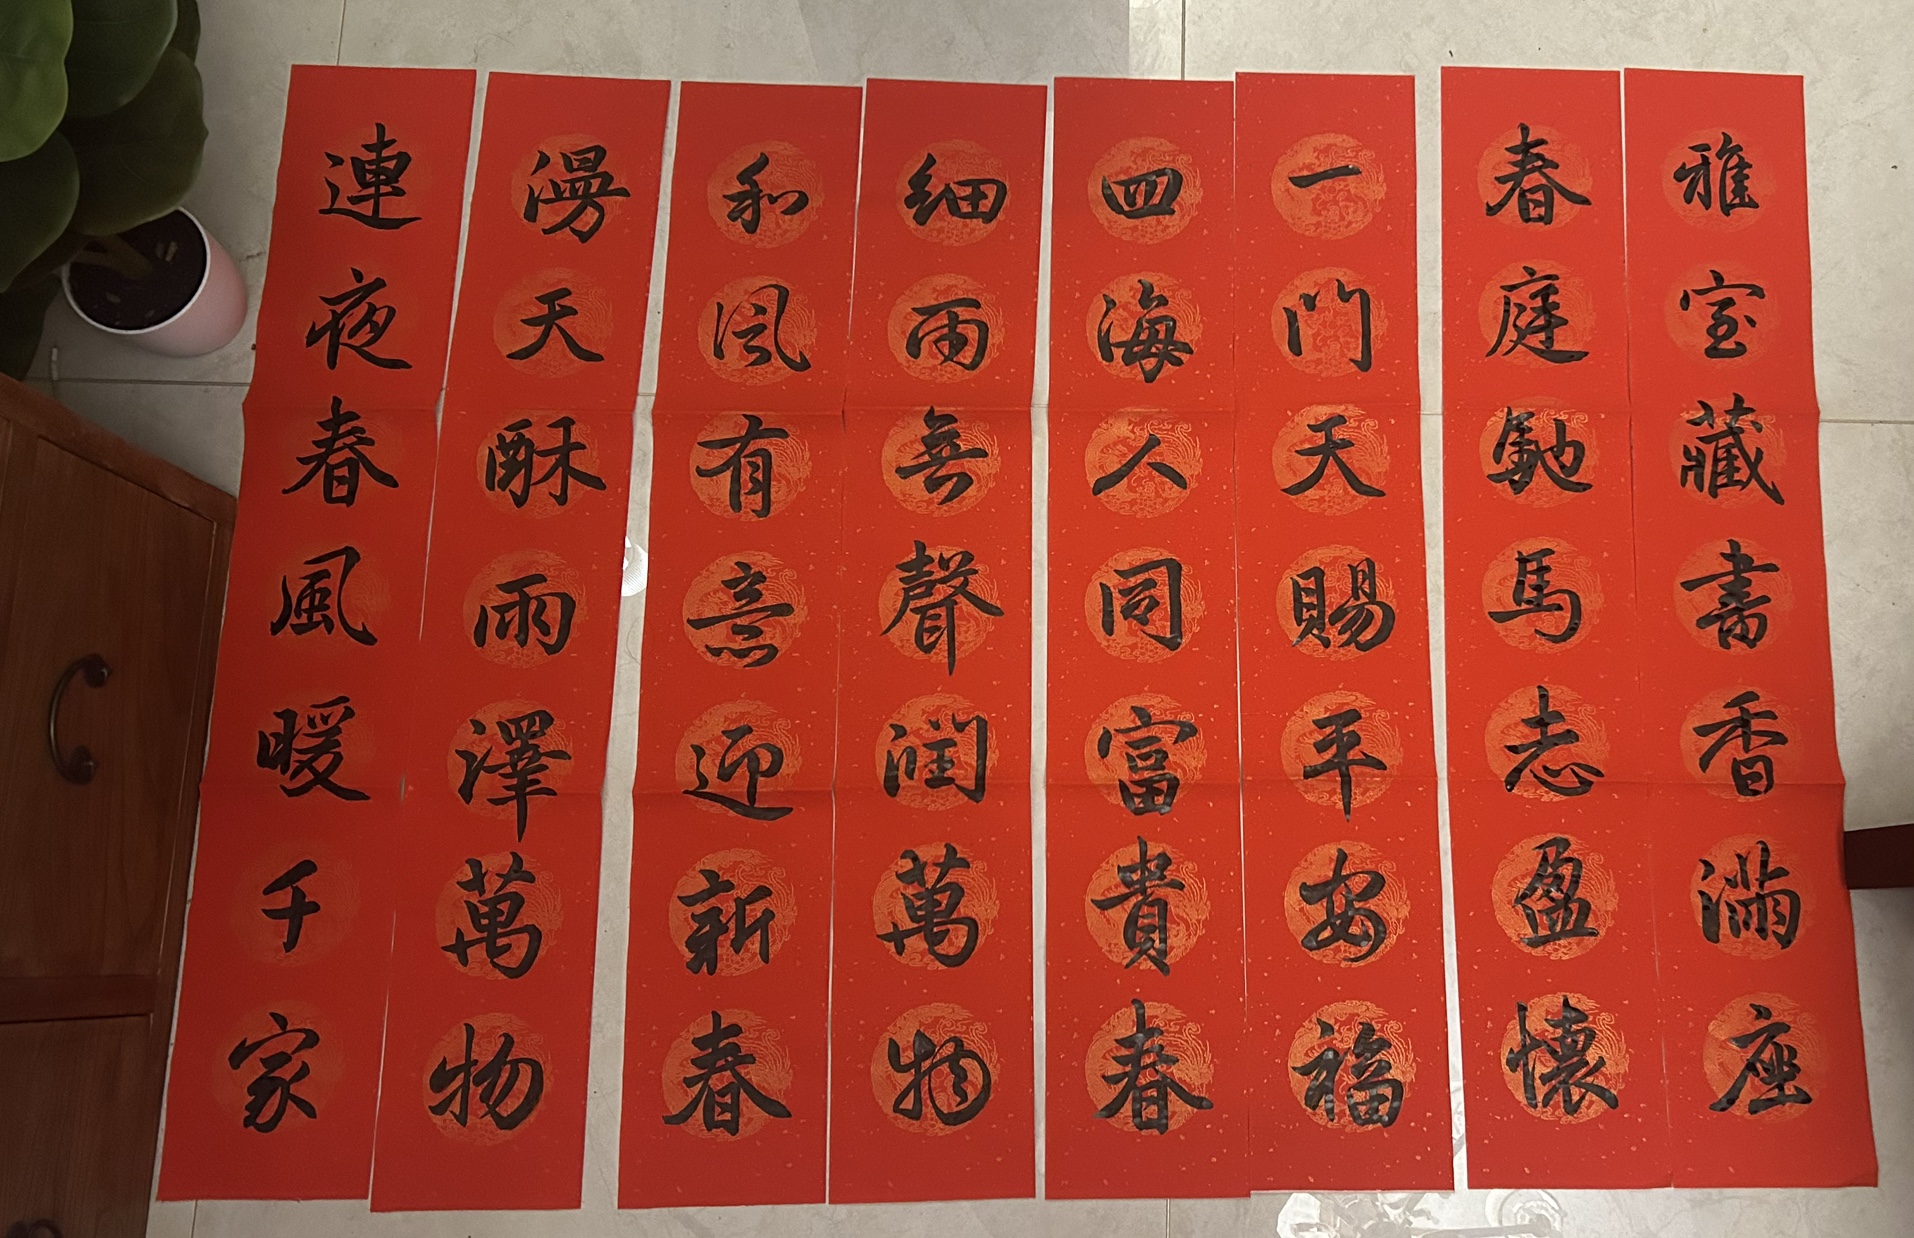 雅室藏書香滿座
春庭馳馬志盈懷
一門天賜平安福
四海人同富貴春
細雨無聲潤萬物
和風有意迎新春
漫天酥雨澤萬物
連夜春風暖千家